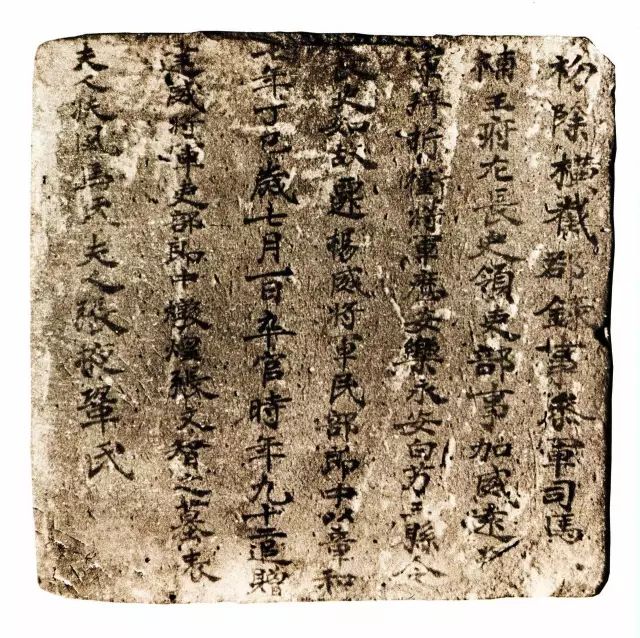 初除橫截郡錄事參軍司馬
補王府左長史領吏部事加威遠將
軍拜折衝將軍歷安樂永安白芳三縣令
長史如故遷楊威將軍民部郎中以章和
七年丁巳歲七月一日卒官時年九十二追贈
建威將軍吏部郎中燉煌張文智之墓表
夫人扶風馬氏夫人張掖鞏氏